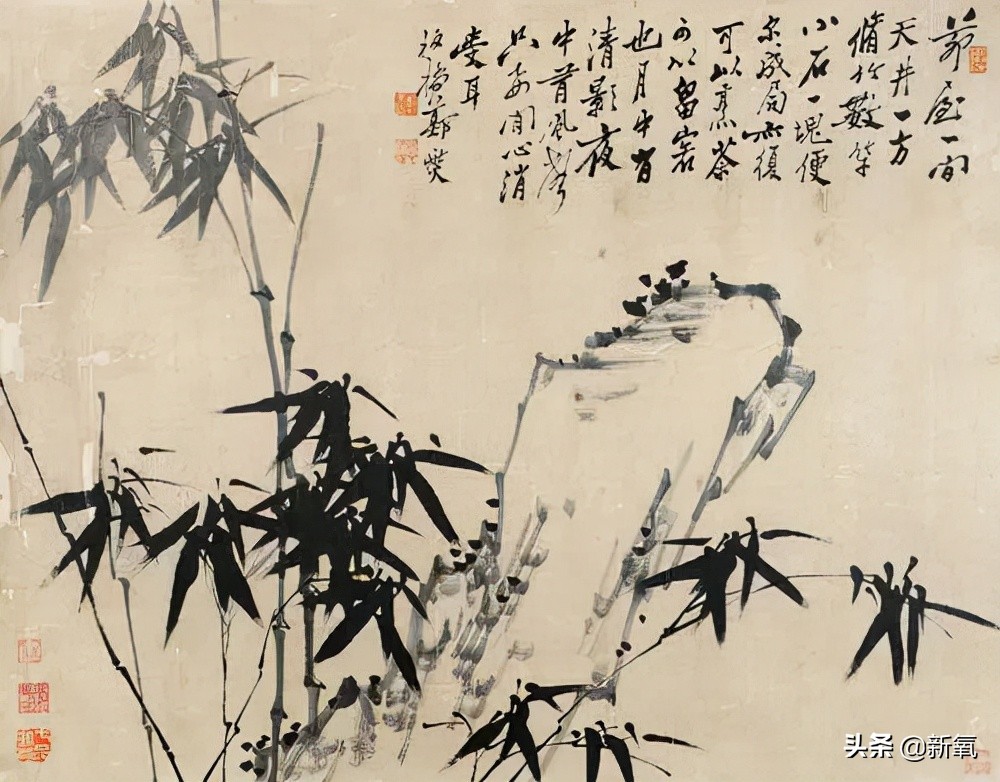 茆屋一間
天井一方
脩竹數竿
小石一塊便
尔成局亦復
可以烹茶
可以留客
也月中有
清影夜
中有風聲
只要閒心消
受耳
板橋鄭燮
头条 @新氧